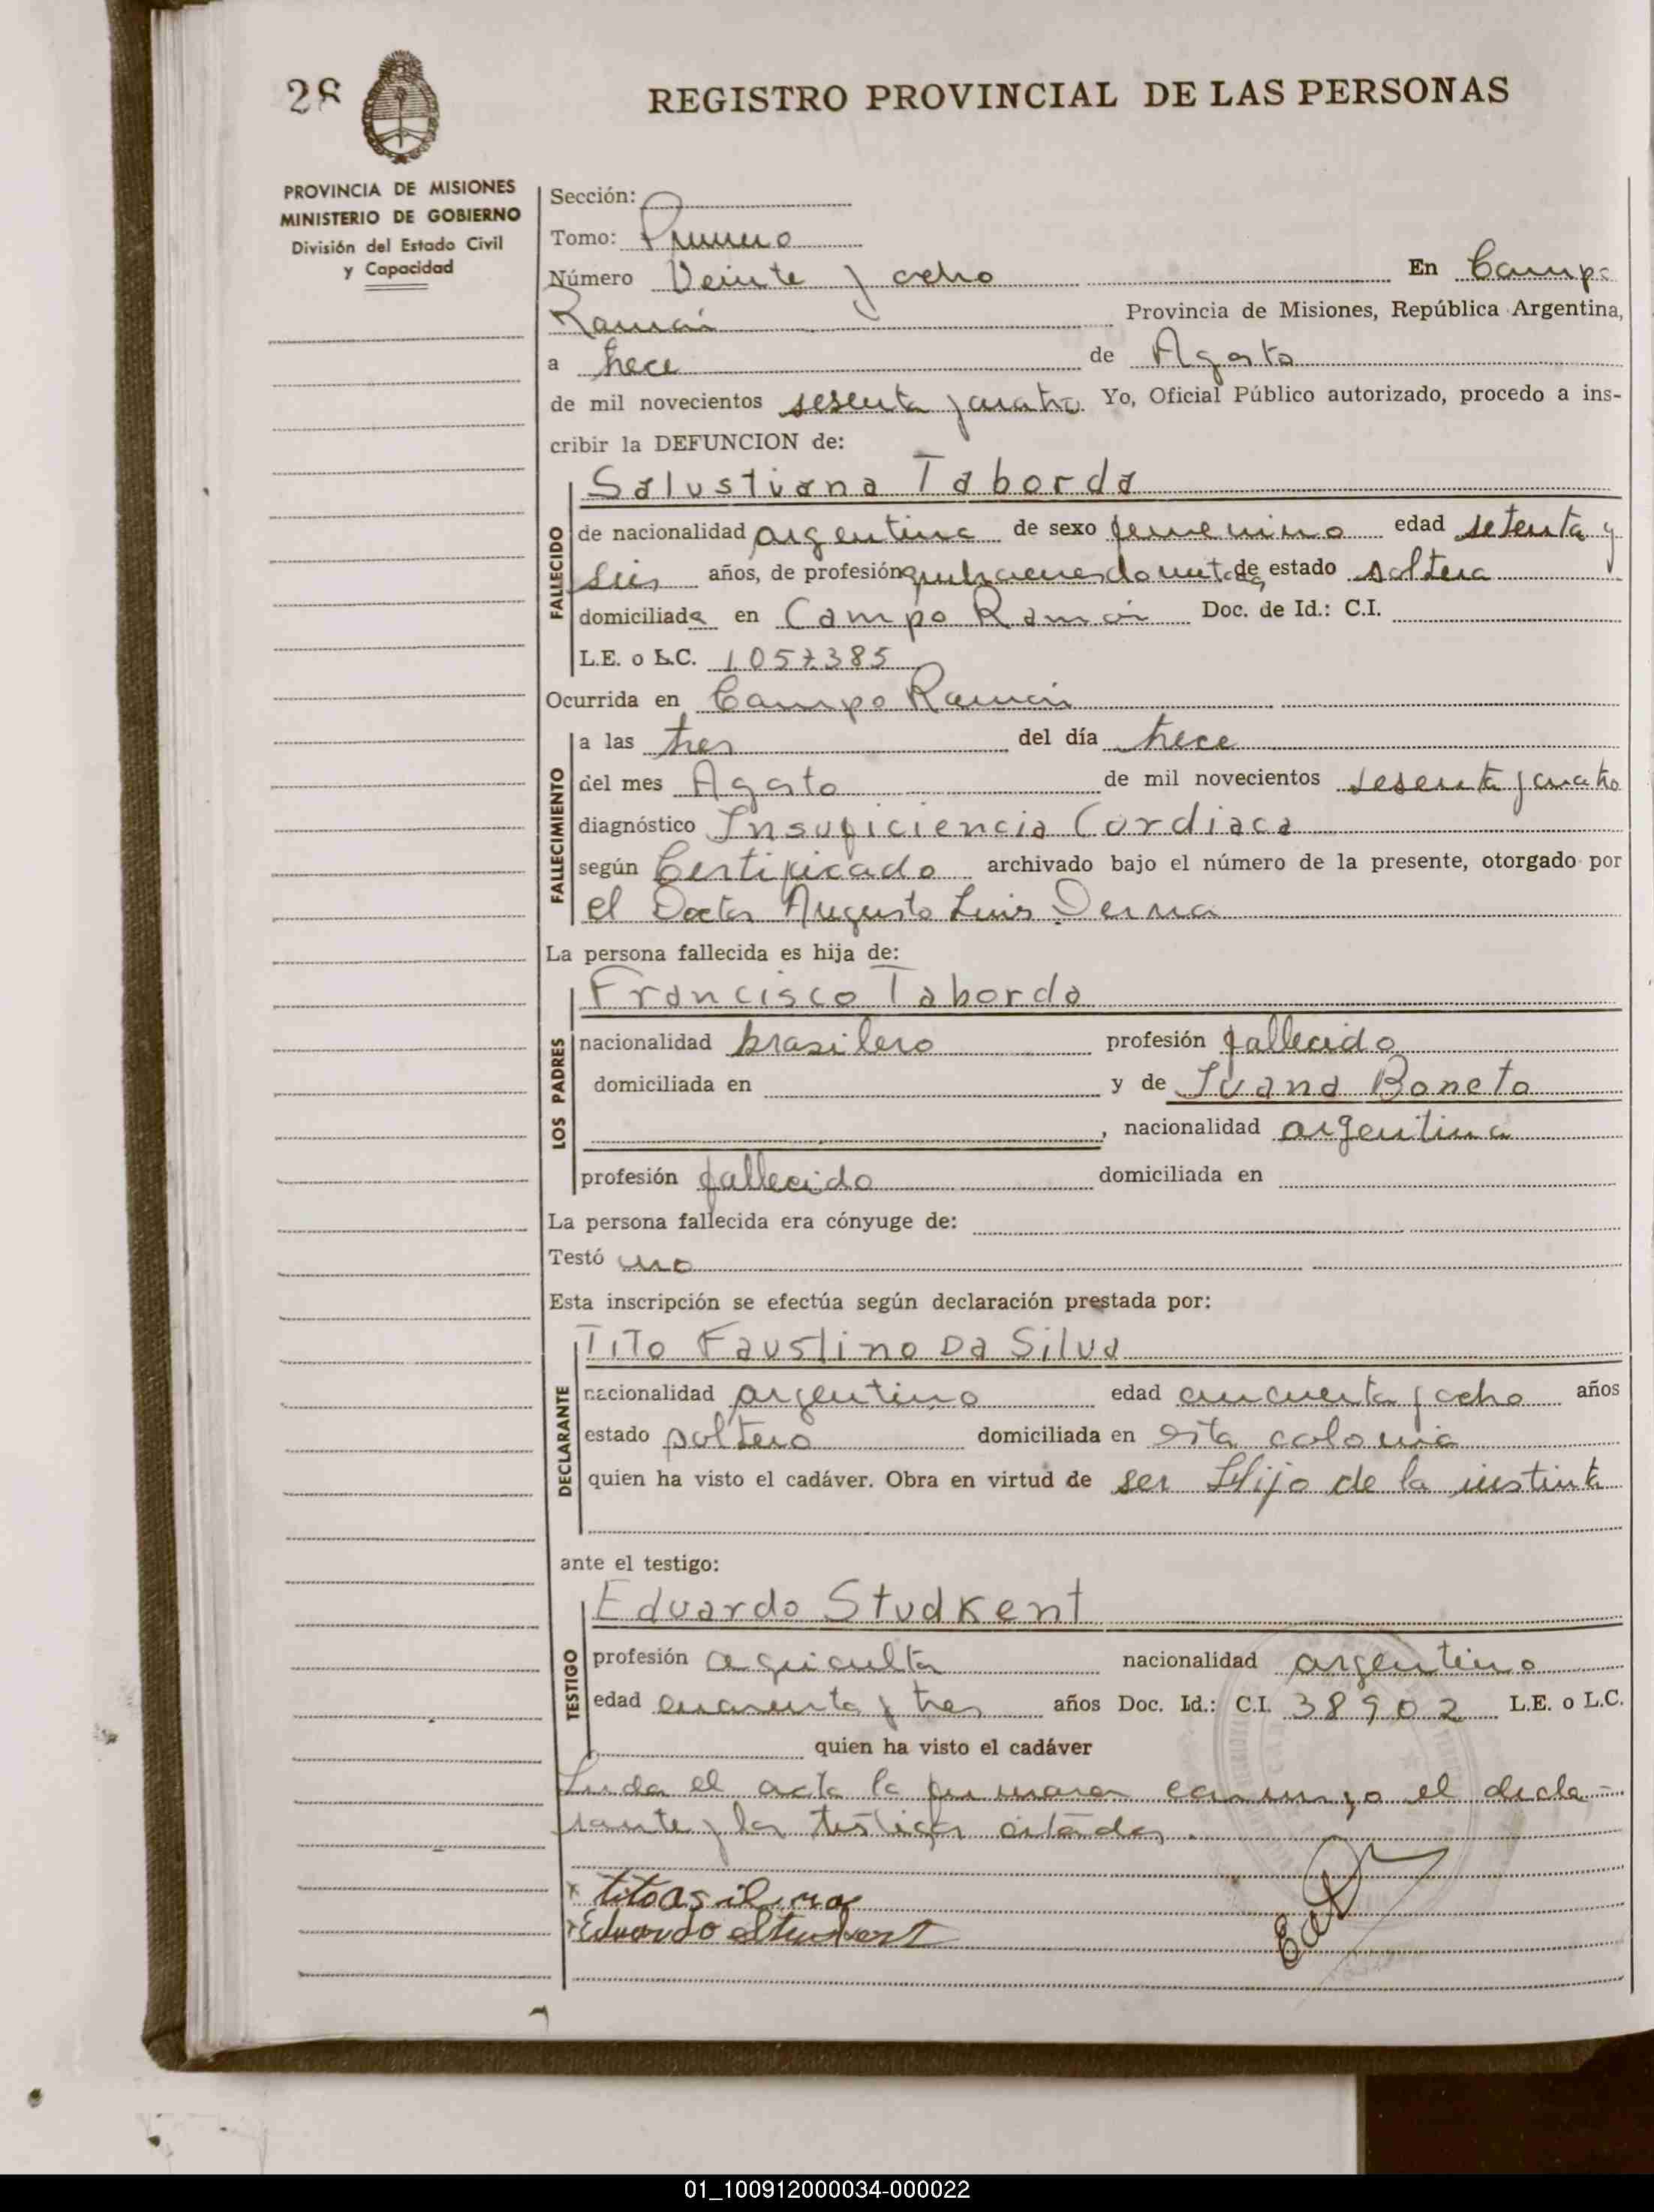 28
REGISTRO PROVINCIAL DE LAS PERSONAS
PROVINCIA DE MISIONES
MINISTERIO DE GOBIERNO
División del Estado Civil
y Capacidad
Sección:
Tomo: Primero
Número Veinte y ocho En Campo
Ramón Provincia de Misiones, República Argentina,
a trece de Agosto
de mil novecientos sesenta y cuatro Yo, Oficial Público autorizado, procedo a ins-
cribir la DEFUNCION de:
Salustiana Taborda
FALLECIDO
de nacionalidad argentina de sexo femenino edad setenta y
seis años, de profesión de estado soltera
domiciliada en Campo Ramón Doc. de Id.: C.I.
L.E. o L.C. 1057385
Ocurrida en Campo Ramón
FALLECIMIENTO
a las tres del día trece
del mes Agosto de mil novecientos sesenta y cuatro
diagnóstico Insuficiencia Cordiaca
según Certificado archivado bajo el número de la presente, otorgado por
el Doctor Augusto Luis Derna
La persona fallecida es hija de:
LOS PADRES
Francisco Taborda
nacionalidad brasilero profesión fallecido
domiciliada en y de Juana Boneto
, nacionalidad argentina
profesión fallecido domiciliada en
La persona fallecida era cónyuge de:
Testó no
Esta inscripción se efectúa según declaración prestada por:
DECLARANTE
Tito Faustino Da Silva
nacionalidad argentino edad cincuenta y ocho años
estado soltero domiciliada en esta colonia
quien ha visto el cadáver. Obra en virtud de ser Hijo de la instinta
ante el testigo:
TESTIGO
Eduardo Studkent
profesión agriculto nacionalidad argentino
edad cuarenta y tres años Doc. Id.: C.I. 38902 L.E. o L.C.
quien ha visto el cadáver
Leida el acta la firmaron conmigo el decla-
rante y los testigos citados.
x titoasilva
x Eduardo
01_100912000034-000022